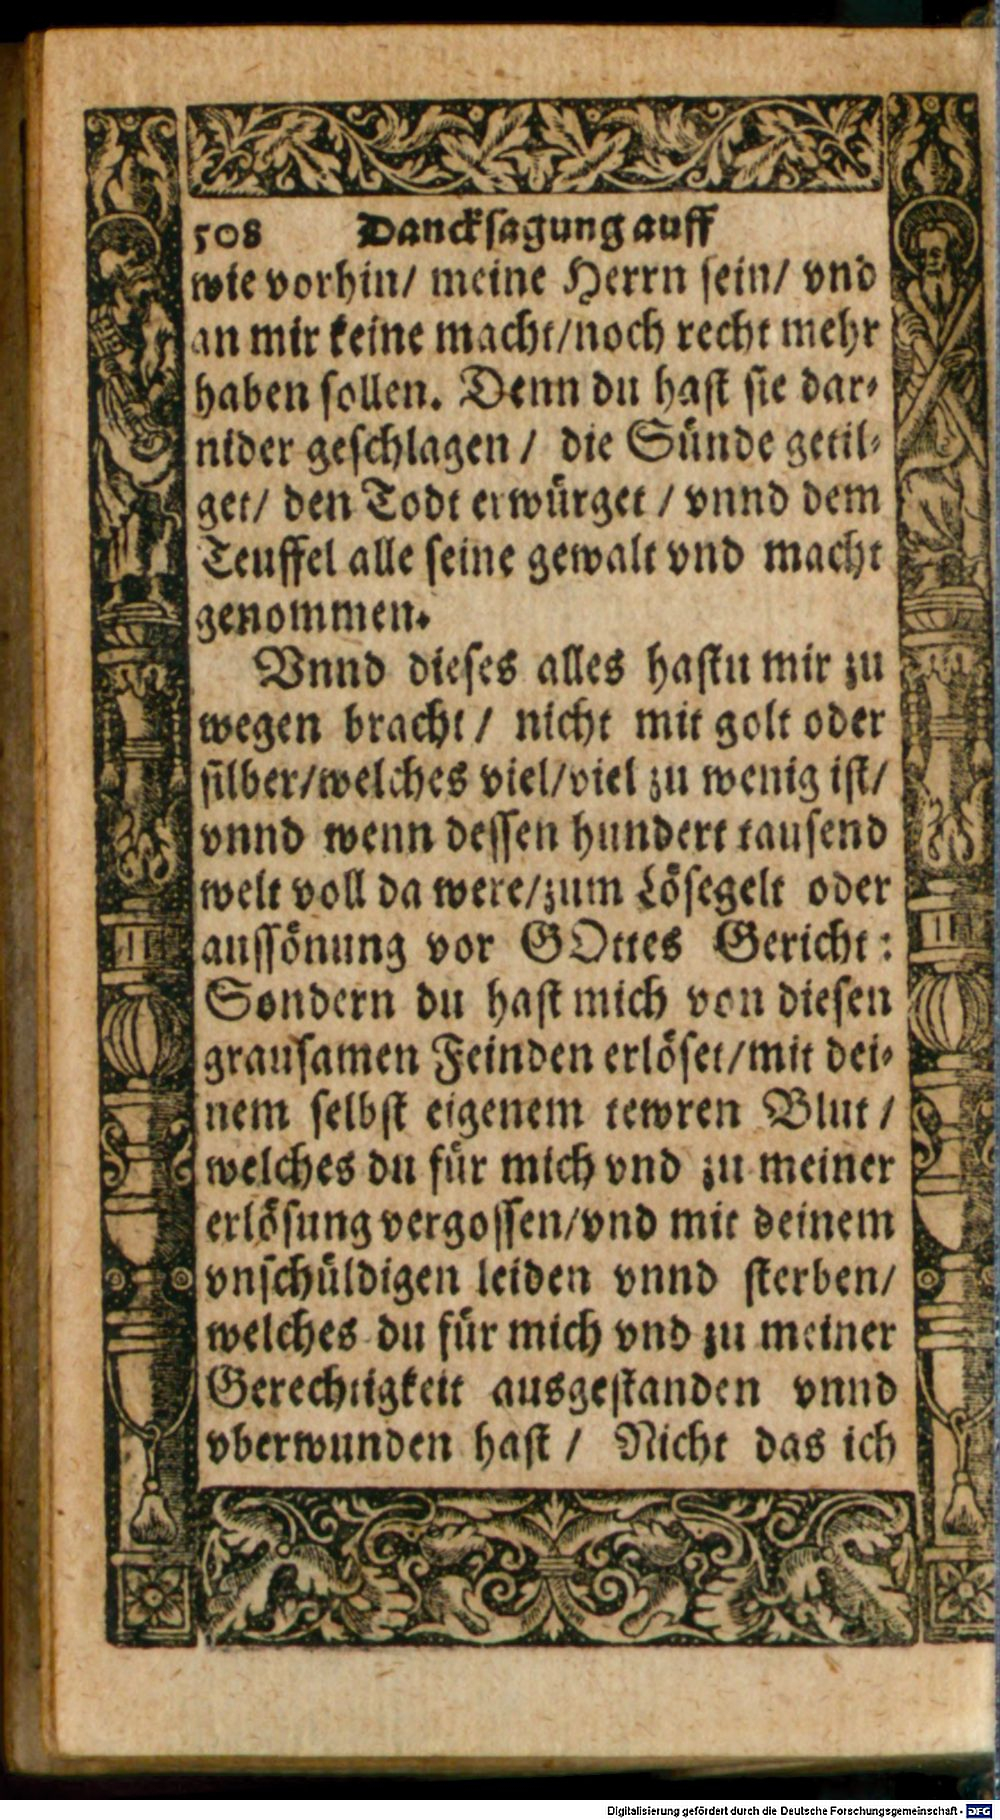 508 Danckſagung auff
wie vorhin/ meine Herrn ſein/ vnd
an mir keine macht/noch recht mehr
haben ſollen. Denn du haſt ſie dar-
nider geſchlagen / die Sünde getil-
get/ den Todt erwürget / vnnd dem
Teuffel alle ſeine gewalt vnd macht
genommen.
Vnnd dieſes alles haſtu mir zu
wegen bracht / nicht mit golt oder
ſilber/welches viel/viel zu wenig iſt/
vnnd wenn deſſen hundert tauſend
welt voll da were/zum Löſegelt oder
auſſönung vor GOttes Gericht:
Sondern du haſt mich von dieſen
grauſamen Feinden erlöſet/mit dei-
nem ſelbſt eigenem tewren Blut /
welches du für mich vnd zu meiner
erlöſung vergoſſen/vnd mit deinem
vnſchüldigen leiden vnnd ſterben/
welches du für mich vnd zu meiner
Gerechtigkeit ausgeſtanden vnnd
vberwunden haſt / Nicht das ich
Digitalisierung gefördert durch die Deutsche Forschungsgemeinschaft - DFG